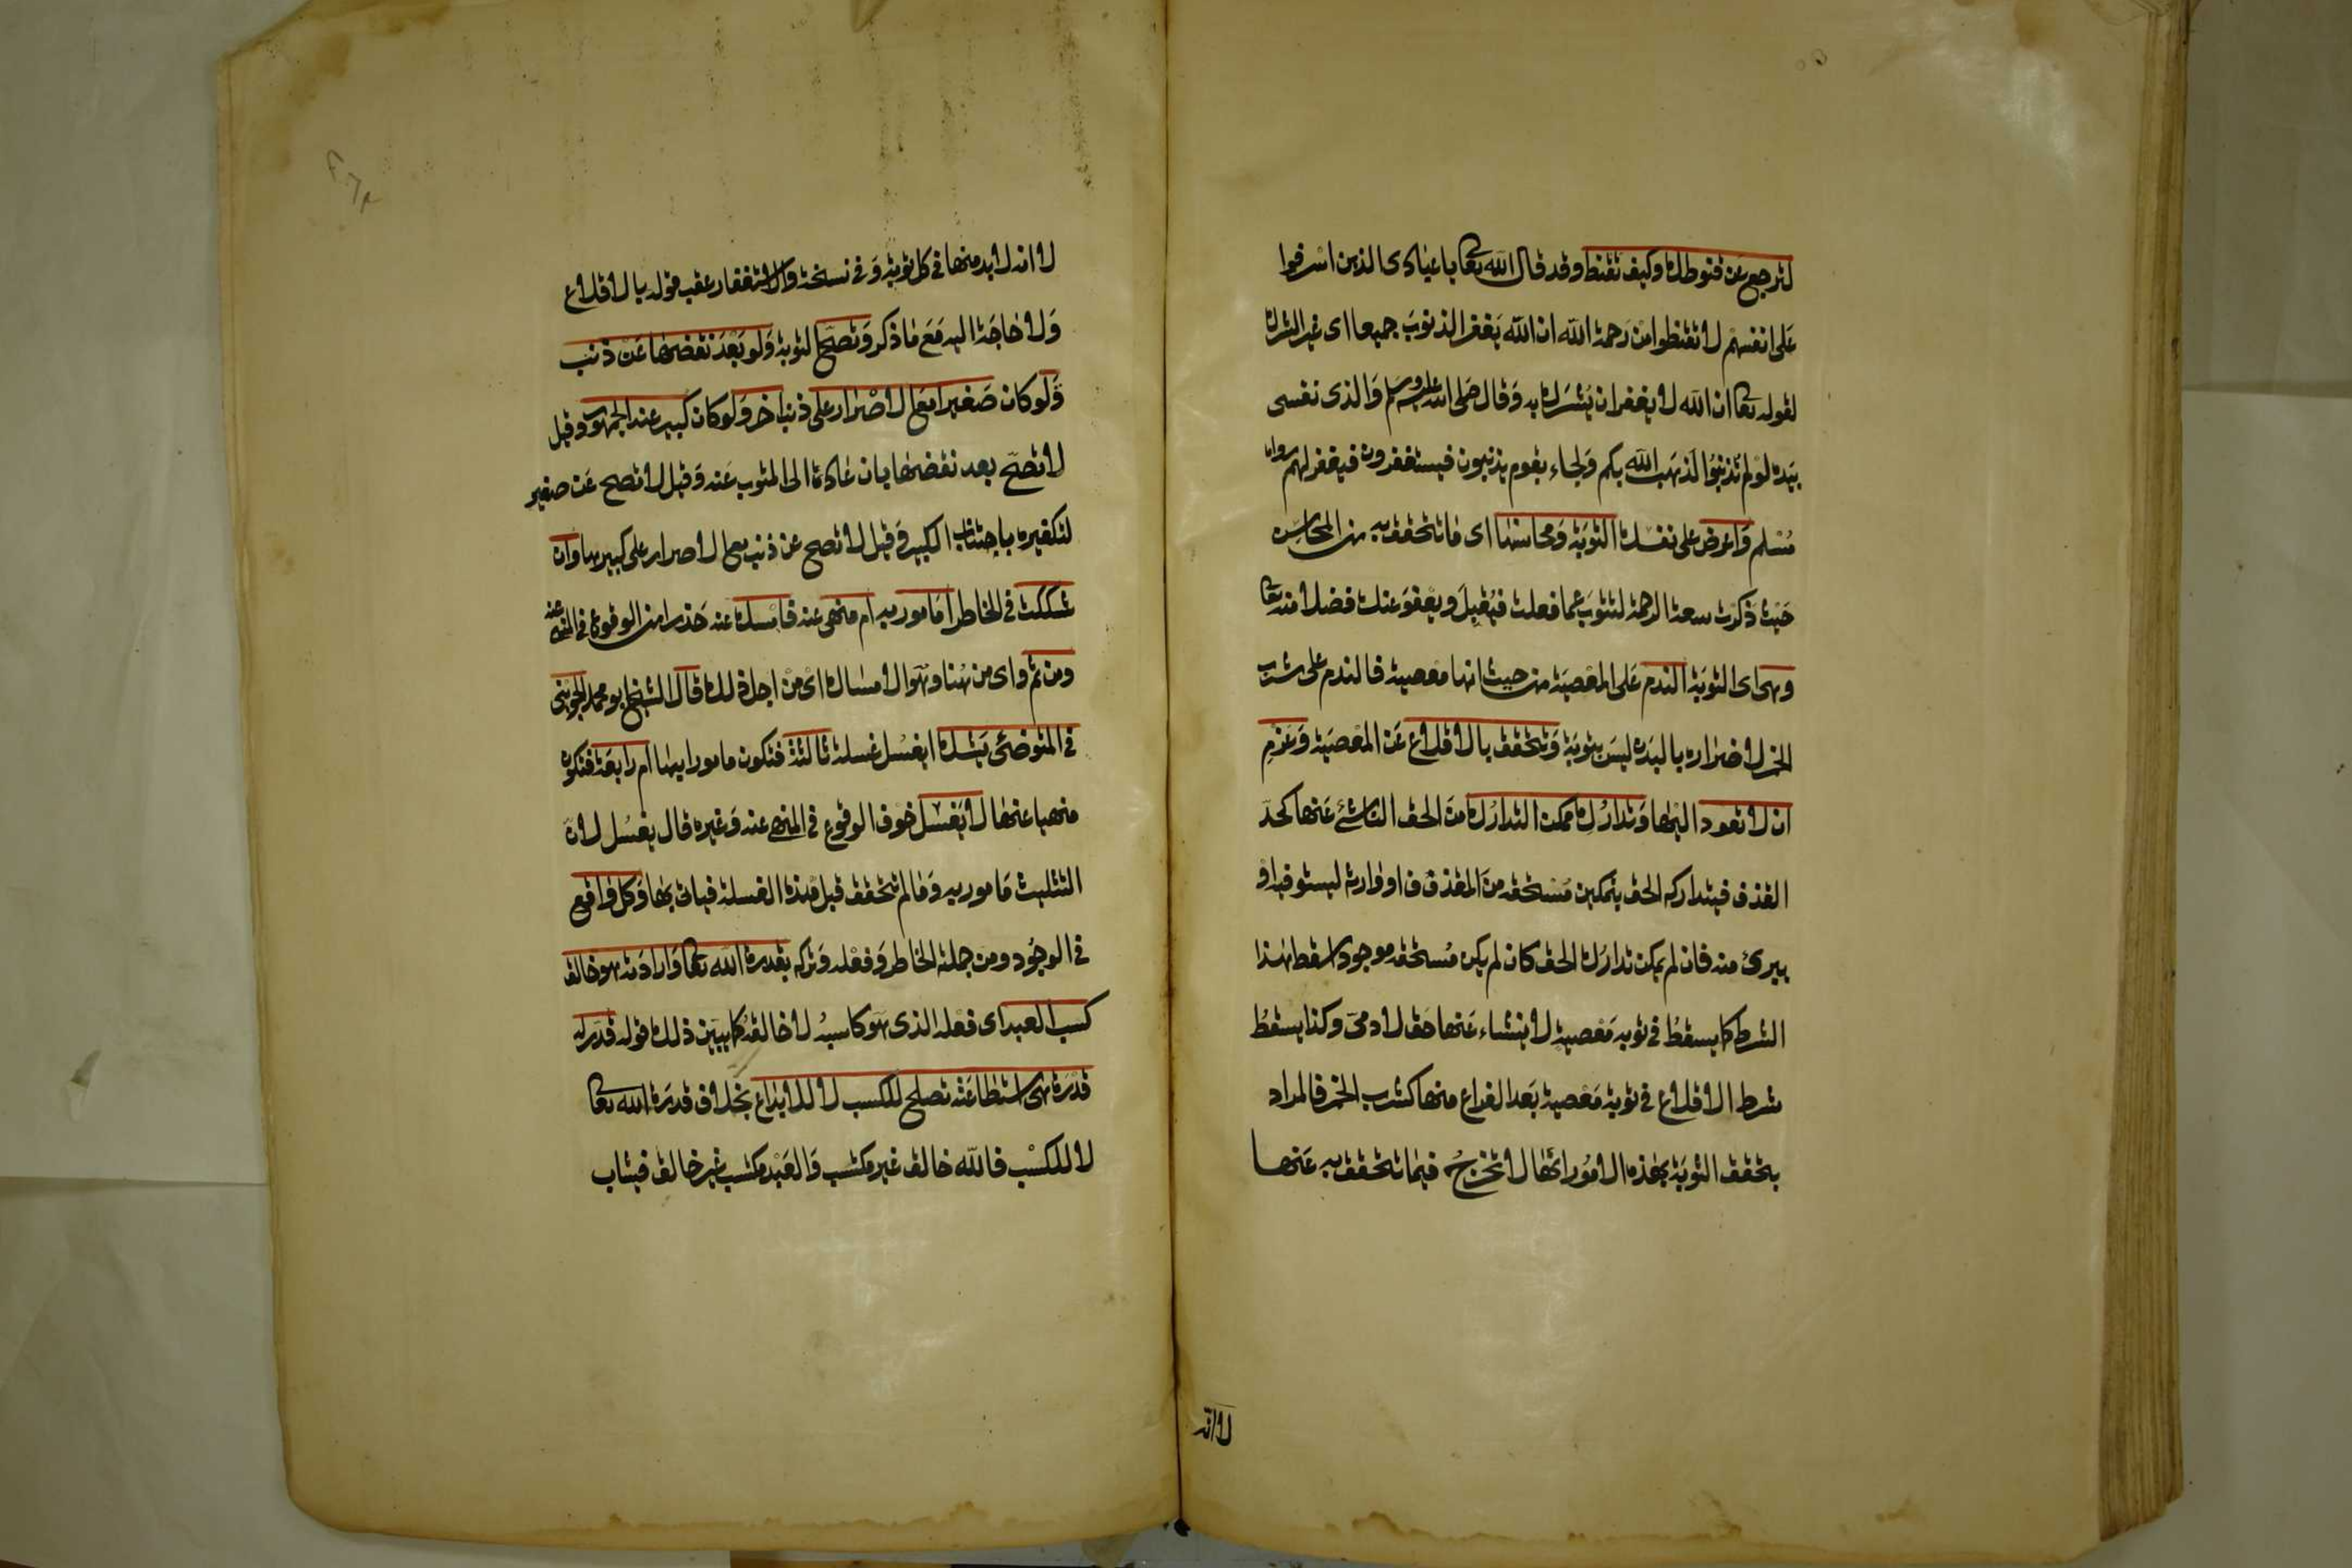 لترجع عن قنوطك وكيف تقنط وقد قال الله تعا يا عبادى الذين اسرفوا
على انفسهم لا تقنطوا من رحمة الله ان الله يغفر الذنوب جميعا اى غير الشرك
لقوله تعا ان الله لا يغفر ان يشرك به وقال صلى الله عليه وسلم والذى نفسى
بيده لو لم تذنبوا لذهب الله بكم ولجاء بقوم يذنبون فيستغفرون فيغفر لهم رواه
مسلم واعرض على نفسك التوبة ومحاسنها اى ما تتحقق به من المحاسن
حيث ذكرت سعة الرحمة لتتوب عما فعلت فيقبل ويعفو عنك فضلا منه تعا
وهى اى التوبة الندم على المعصية من حيث انها معصية فالندم على شرب
الخمر لاضراره بالبدن ليس بتوبة وتتحقق بالاقلاع عن المعصية وعزم
ان لا تعود اليها وتدارك ممكن التدارك من الحق الناشئ عنها كحد
القذف فيتداركه الحق بتمكين مستحقه من المقذوف او وارثه ليستوفيه او
يبرئ منه فان لم يمكن تدارك الحق كان لم يكن مستحقه موجودا سقط هذا
الشرط كما يسقط فى توبه معصية لا ينشاء عنها حق لادمى وكذا يسقط
شرط الاقلاع فى توبة معصية بعد الفراغ منها كشرب الخمر فالمراد
بتحقق التوبة بهذه الامور انها لا تخرج فيما تتحقق به عنها
لا انه
لا انه لابد منها فى كل توبة وفى نسخة والاستغفار عقب قوله بالاقلاع
ولا حاجة اليه مع ما ذكر وتصح التوبة ولو بعد نقضها عن ذنب
ولو كان صغيرا مع الاصرار على ذنب اخر ولو كان كبير عند الجمهور وقيل
لا تصح بعد نقضها بان عاد الى المتوب عنه وقيل لا تصح عن صغير
لتكفيره باجتناب الكبير وقيل لا تصح عن ذنب مع الاصرار على كبير وان
شككت فى الخاطر امامور به ام منهى عنه فامسك عنه حذرا من الوقوع فى المنهى عنه
ومن ثم واى من هنا وهو الامساك اى من اجل ذلك قال الشيخ ابو محمد الجوينى
فى المتوضئ يشك ايغسل غسلة ثالثة فتكون مامورا بها ام رابعة فتكون
منهيا عنها لا يغسل خوف الوقوع فى المنهى عنه وغيره قال يغسل لان
التثليث مامور به وما لم تتحقق قبل هذه الغسلة فياتى بها وكل واقع
فى الوجود ومن جملة الخاطر وفعله وتركه بقدرة الله تعا وارادته هو خالق
كسب العبد اى فعله الذى هو كاسبه لا خالقه كما يبين ذلك قوله قدر له
قدرة هى استطاعته تصلح للكسب لا للابداع بخلاف قدرة الله تعا
لا للكسب فالله خالق غير مكتسب والعبد مكتسب غير خالق فيثاب